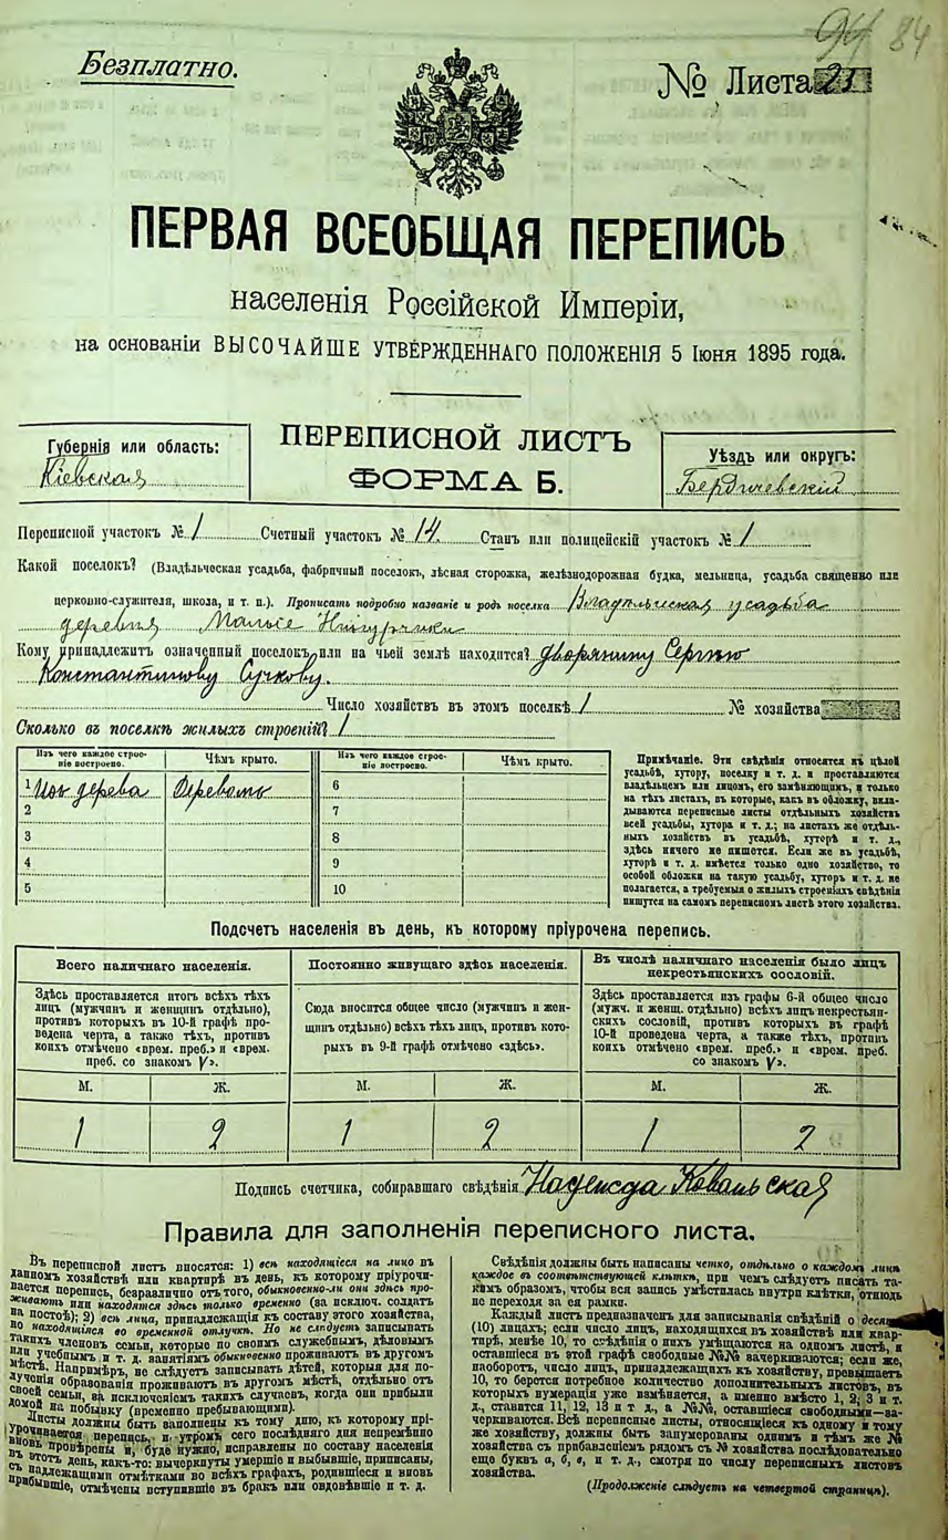 84
Безплатно.
№ Листа 21
ПЕРВАЯ ВСЕОБЩАЯ ПЕРЕПИСЬ
населенія Россійской Имперіи,
на основаніи ВЫСОЧАЙШЕ УТВЕРЖДЕННАГО ПОЛОЖЕНІЯ 5 Іюня 1895 года.
ПЕРЕПИСНОЙ ЛИСТЪ
ФОРМА Б.
Губернія или область:
Кіевская
Уѣздъ или округъ:
Бердичевскій
Переписной участокъ № 1 Счетный участокъ № 14. Станъ или полицейскій участокъ № 1
Какой поселокъ? (Владѣльческая усадьба, фабричный поселокъ, лѣсная сторожка, желѣзнодорожная будка, мельница, усадьба священно или
церковно-служителя, школа, и т. п.). Прописать подробно названіе и родъ поселка Владѣльческая усадьба
деревня Малые Низгурчики
Кому принадлежитъ означенный поселокъ или на чьей землѣ находится? дворянину Сергѣю
Константинову Сучкову.
Число хозяйствъ въ этомъ поселкѣ 1 № хозяйства
Сколько въ поселкѣ жилыхъ строеній? 1
Изъ чего каждое строе-
ніе построено.
Чѣмъ крыто.
Изъ чего каждое строе-
ніе построено.
Чѣмъ крыто.
1 Изъ дерева Деревомъ 6
2 7
3 8
4 9
5 10
Примѣчаніе. Эти свѣдѣнія относятся къ цѣлой
усадьбѣ, хутору, поселку и т. д. и проставляются
владѣльцемъ или лицомъ, его замѣняющимъ, и только
на тѣхъ листахъ, въ которые, какъ въ обложку, вкла-
дываются переписные листы отдѣльныхъ хозяйствъ
всей усадьбы, хутора и т. д.; на листахъ же отдѣль-
ныхъ хозяйствъ въ усадьбѣ, хуторѣ и т. д.,
здѣсь ничего не пишется. Если же въ усадьбѣ,
хуторѣ и т. д. имѣется только одно хозяйство, то
особой обложки на такую усадьбу, хуторъ и т. д. не
полагается, а требуемыя о жилыхъ строеніяхъ свѣдѣнія
пишутся на самомъ переписномъ листѣ этого хозяйства.
Подсчетъ населенія въ день, къ которому пріурочена перепись.
Всего наличнаго населенія.
Здѣсь проставляется итогъ всѣхъ тѣхъ
лицъ (мужчинъ и женщинъ отдѣльно),
противъ которыхъ въ 10-й графѣ про-
ведена черта, а также тѣхъ, противъ
коихъ отмѣчено «врем. преб.» и «врем.
преб. со знакомъ V».
Постоянно живущаго здѣсь населенія.
Сюда вносится общее число (мужчинъ и жен-
щинъ отдѣльно) всѣхъ тѣхъ лицъ, противъ кото-
рыхъ въ 9-й графѣ отмѣчено «здѣсь».
Въ числѣ наличнаго населенія было лицъ
некрестьянскихъ сословій.
Здѣсь проставляется изъ графы 6-й общее число
(мужч. и женщ. отдѣльно) всѣхъ лицъ некрестьян-
скихъ сословій, противъ которыхъ въ графѣ
10-й проведена черта, а также тѣхъ, противъ
коихъ отмѣчено «врем. преб.» и «врем. преб.
со знакомъ V».
М. Ж. М. Ж. М. Ж.
1 2 1 2 1 2
Подпись счетчика, собиравшаго свѣдѣнія Надежда Ковальская
Правила для заполненія переписного листа.
Въ переписной листъ вносятся: 1) всѣ находящіеся на лицо въ
данномъ хозяйствѣ или квартирѣ въ день, къ которому пріурочи-
вается перепись, безразлично отъ того, обыкновенно-ли они здѣсь про-
живаютъ или находятся здѣсь только временно (за исключ. солдатъ
на постоѣ); 2) всѣ лица, принадлежащія къ составу этого хозяйства,
но находящіяся во временной отлучкѣ. Но не слѣдуетъ записывать
такихъ членовъ семьи, которые по своимъ служебнымъ, дѣловымъ
или учебнымъ и т. д. занятіямъ обыкновенно проживаютъ въ другомъ
мѣстѣ. Напримѣръ, не слѣдуетъ записывать дѣтей, которыя для по-
лученія образованія проживаютъ въ другомъ мѣстѣ, отдѣльно отъ
своей семьи, за исключеніемъ такихъ случаевъ, когда они прибыли
домой на побывку (временно пребывающими).
Листы должны быть заполнены къ тому дню, къ которому прі-
урочивается перепись, и утромъ сего послѣдняго дня непремѣнно
вновь провѣрены и, буде нужно, исправлены по составу населенія
въ этотъ день, какъ-то: вычеркнуты умершіе и выбывшіе, приписаны,
съ надлежащими отмѣтками во всѣхъ графахъ, родившіеся и вновь
прибывшіе, отмѣчены вступившіе въ бракъ или овдовѣвшіе и т. д.
Свѣдѣнія должны быть написаны четко, отдѣльно о каждомъ лицѣ
каждое въ соотвѣтствующей клѣткѣ, при чемъ слѣдуетъ писать та-
кимъ образомъ, чтобы вся запись умѣстилась внутри клѣтки, отнюдь
не переходя за ея рамки.
Каждый листъ предназначенъ для записыванія свѣдѣній о десяти
(10) лицахъ; если число лицъ, находящихся въ хозяйствѣ или квар-
тирѣ, менѣе 10, то свѣдѣнія о нихъ умѣщаются на одномъ листѣ, и
оставшіеся въ этой графѣ свободные №№ вачеркиваются; если же,
наоборотъ, число лицъ, принадлежащихъ къ хозяйству, превышаетъ
10, то берется потребное количество дополнительныхъ листовъ, въ
которыхъ нумерація уже измѣняется, а именно вмѣсто 1, 2, 3 и т.
д., ставится 11, 12, 13 и т. д., а №№, оставшіеся свободными—за-
черкиваются. Всѣ переписные листы, относящіеся къ одному и тому
же хозяйству, должны быть занумерованы однимъ и тѣмъ же №
хозяйства съ прибавленіемъ рядомъ съ № хозяйства послѣдовательно
еще буквъ а, б, в, и т. д., смотря по числу переписныхъ листовъ
хозяйства.
(Продолженіе слѣдуетъ на четвертой страницѣ).